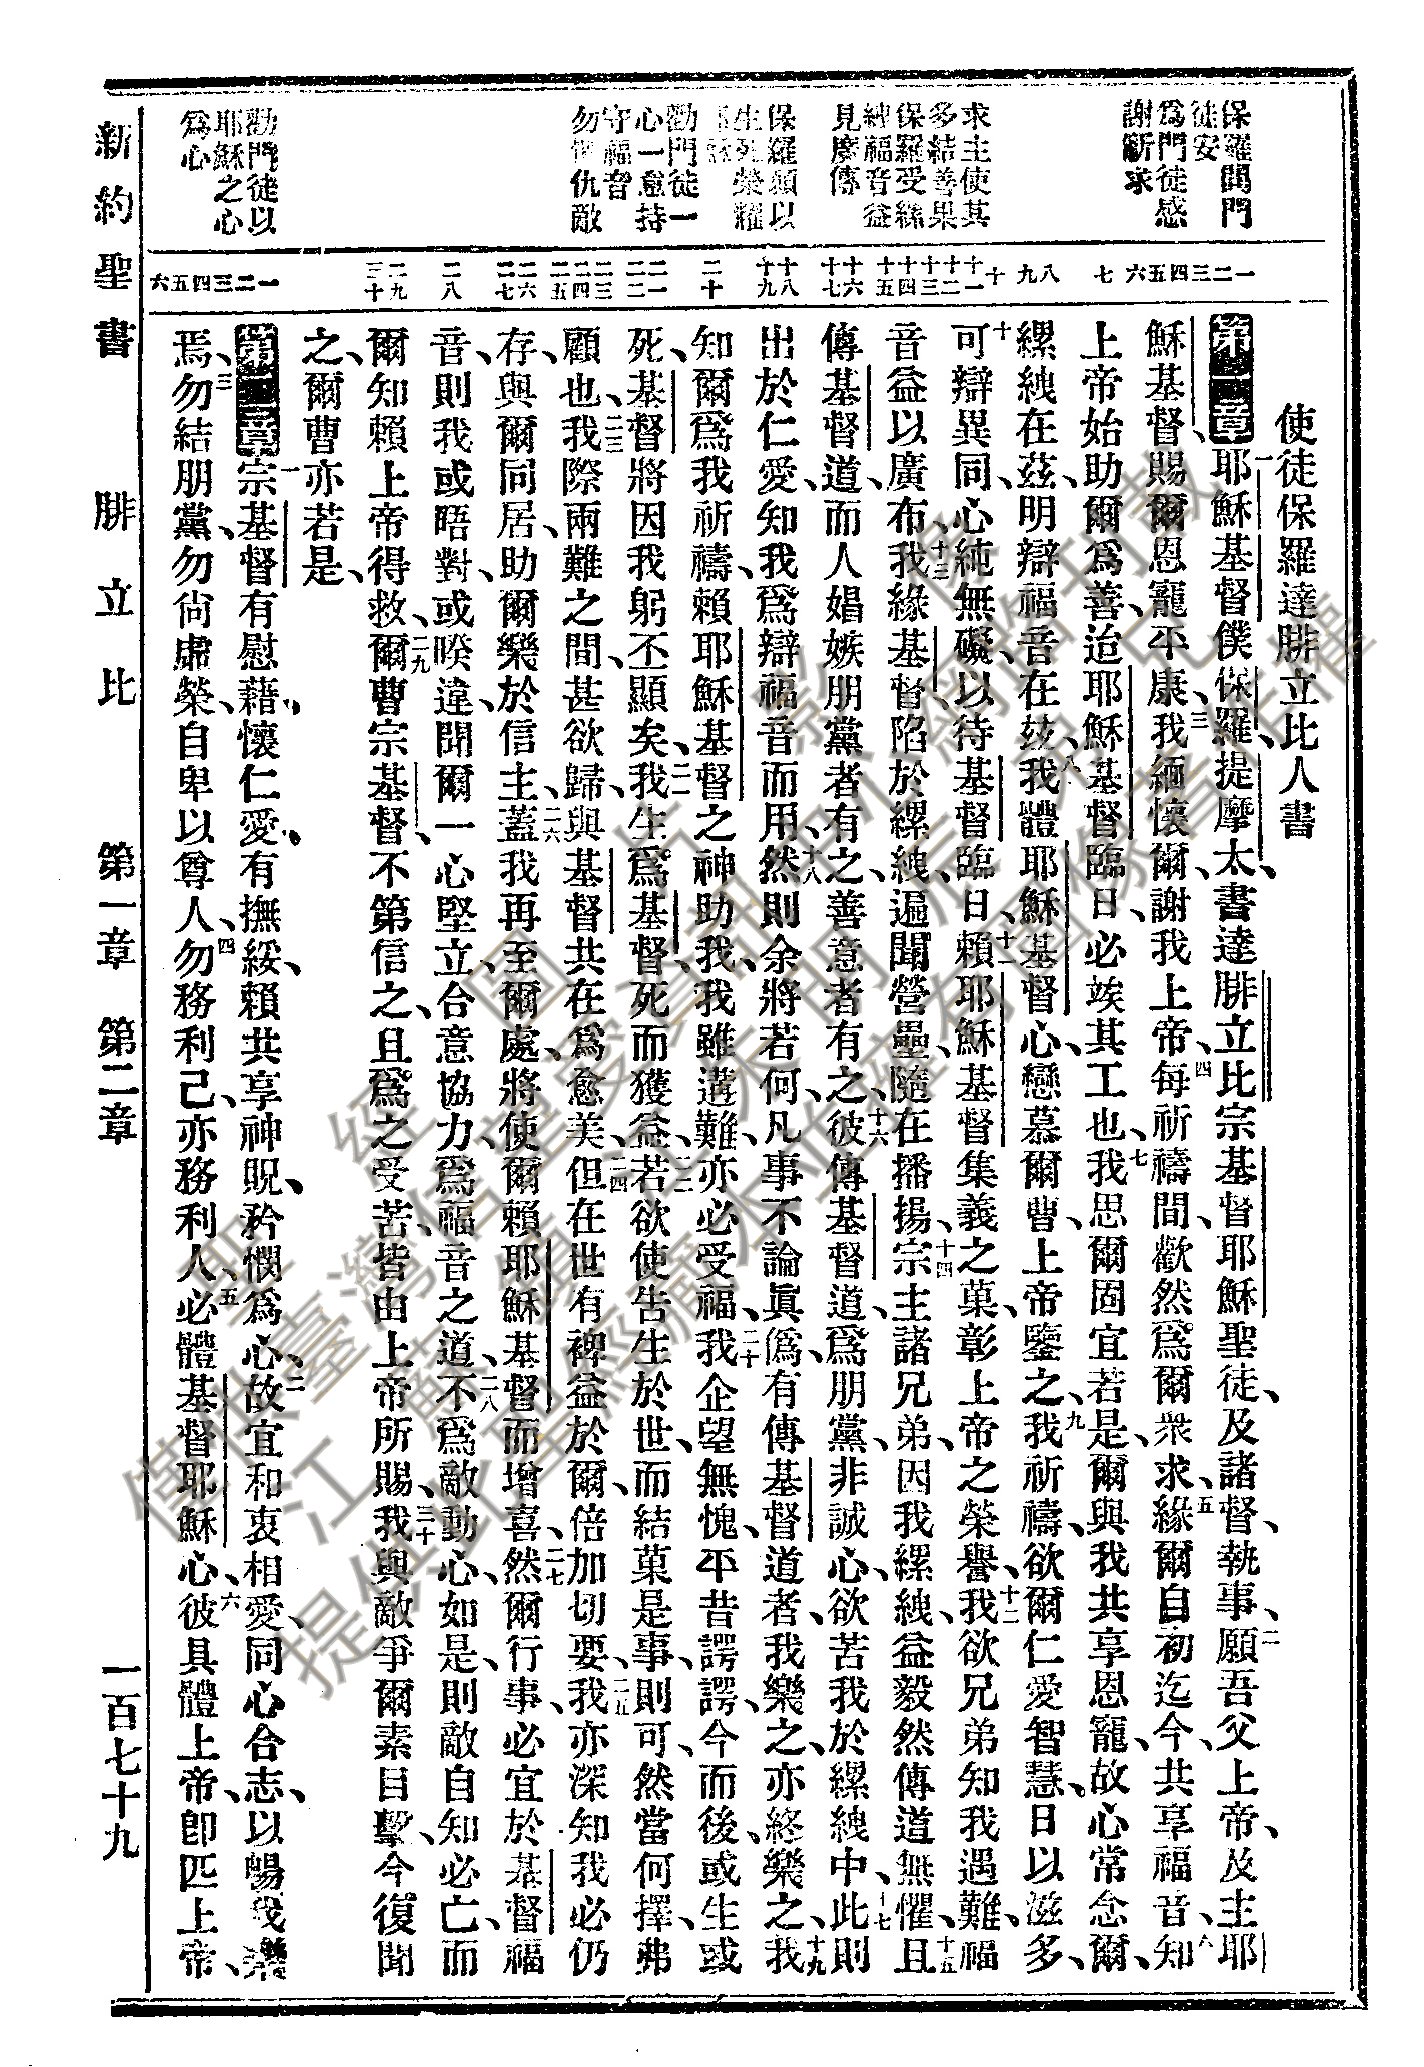 使徒保羅達腓立比人書
第一章 一耶穌基督僕保羅、提摩太、書達腓立比宗基督耶穌聖徒、及諸督、執事、二願吾父上帝、及主耶
穌基督、賜爾恩寵平康、三我緬懷爾、謝我上帝、四每祈禱間、歡然爲爾衆求、五緣爾自初迄今、共享福音、六知
上帝始助爾爲善、迨耶穌基督臨日、必竣其工也、七我思爾固宜若是、爾與我共享恩寵、故心常念爾、
縲絏在茲、明辯福音在茲、八我體耶穌基督心、戀慕爾曹、上帝鑒之、九我祈禱、欲爾仁愛智慧、日以滋多、
十可辯異同、心純無礙、以待基督臨日、十一賴耶穌基督集義之菓、彰上帝之榮譽、十二我欲兄弟知我遇難、福
音益以廣布、十三我緣基督、陷於縲絏、遍聞營壘、隨在播揚、十四宗主諸兄弟、因我縲絏、益毅然傳道無懼、十五且
傳基督道、而人媢嫉朋黨者有之、善意者有之、十六彼傳基督道、爲朋黨、非誠心、欲苦我於縲絏中、十七此則
出於仁愛、知我爲辯福音而用、十八然則余將若何、凡事不論眞僞、有傳基督道者、我樂之、亦終樂之、十九我
知爾爲我祈禱、賴耶穌基督之神助我、我雖遘難、亦必受福、二十我企望無愧、平昔諤諤、今而後、或生或
死、基督將因我躬丕顯矣、二一我生爲基督、死而獲益、二二若欲使吿生於世、而結菓是事、則可、然當何擇、弗
顧也、二三我際兩難之間、甚欲歸、與基督共在爲愈美、二四但在世有裨益於爾、倍加切要、二五我亦深知我必仍
存、與爾同居、助爾樂於信主、二六蓋我再至爾處、將使爾賴耶穌基督而增喜、二七然爾行事、必宜於基督福
音、則我或晤對、或睽違、聞爾一心堅立、合意協力、爲福音之道、二八不爲敵動心、如是、則敵自知必亡、而
爾知賴上帝得救、二九爾曹宗基督、不第信之、且爲之受苦、皆由上帝所賜、三十我與敵爭、爾素目擊、今復聞
之、爾曹亦若是、
第二章 一宗基督有慰藉、懷仁愛、有撫綏、賴共享神貺、矜憫爲心、二故宜和衷相愛、同心合志、以暢我樂、
焉、三勿結朋黨、勿尙虛榮、自卑以尊人、四勿務利己、亦務利人、五必體基督耶穌心、六彼具體上帝、卽匹上帝、
保羅聞門
徒安
爲門徒感
謝祈求
求主使其
多結善果
保羅受縲
絏福音益
見廣傳
保羅願以
生死榮耀
勸門徒一
心一意持
守福音
勿懼仇敵
勸門徒以
耶穌之心
爲心
一 二 三 四 五 六 七 八 九 十 十一 十二 十三 十四 十五 十六 十七 十八 十九 二十 二一 二二 二三 二四 二五 二六 二七 二八 二九 三十 一 二 三 四 五 六
新約聖書 腓立比 第一章 第二章 一百七十九